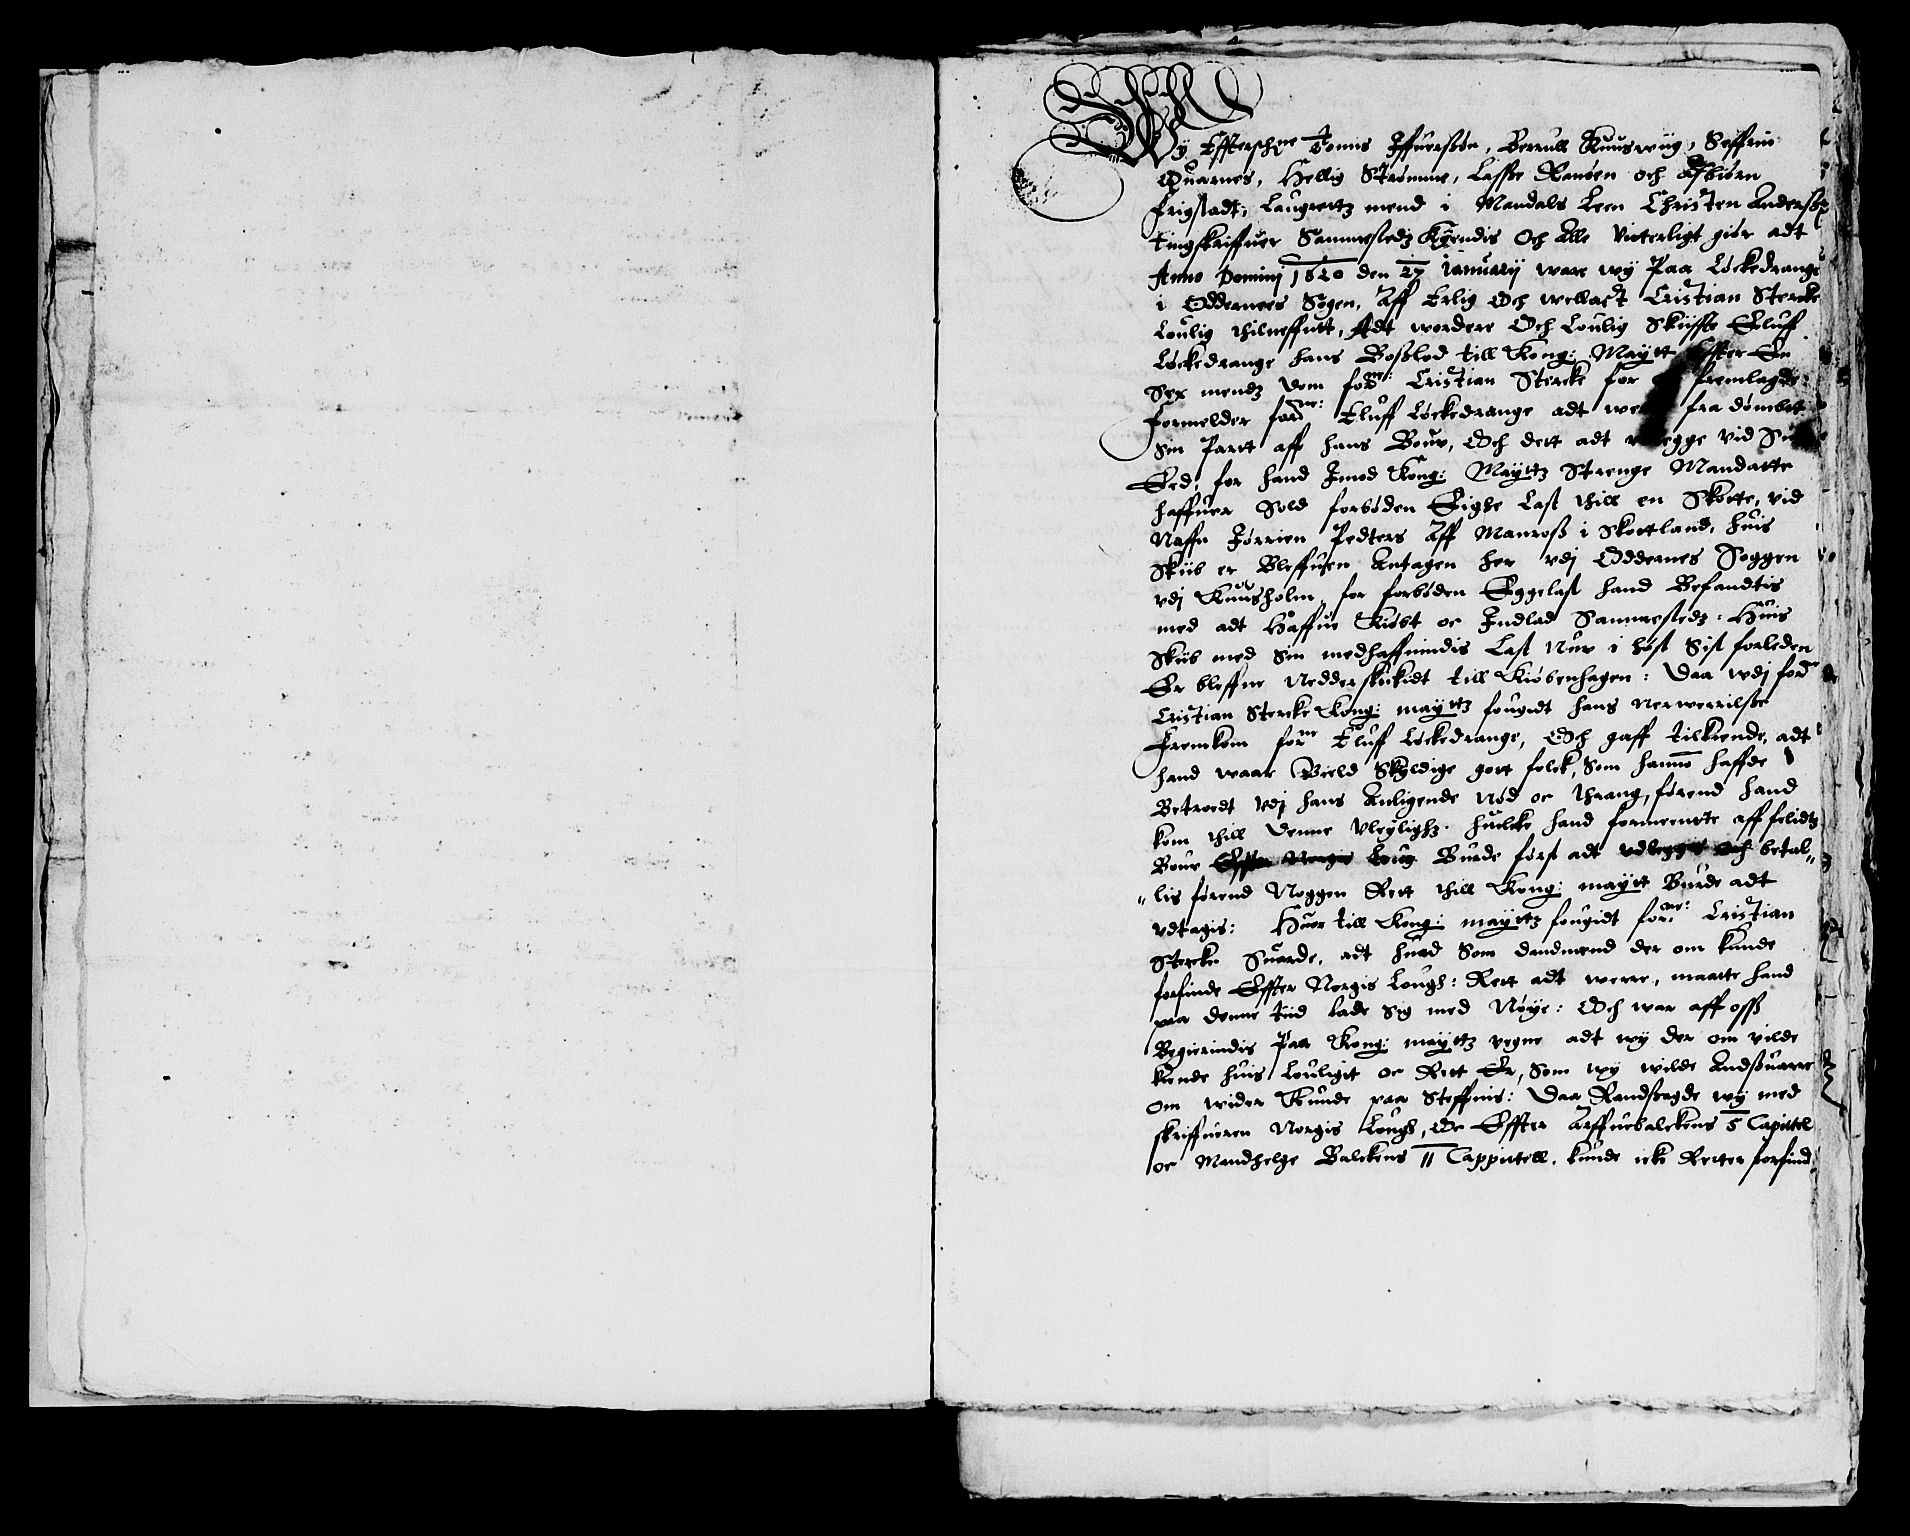 Wy Effterschne Tonnis Iffuersøn, Berrull Kuuswiig, Seffrin
Quarnes, Hellig Strømme, Lasse Randen och Asbiørn
Frigstadt, Laugrettz mend i Mandals Leen Christen Anderss
tingskriffuer Sammestedz Kyendis Och Alle Vitterligt giør adt
Anno Dominj 1620 den 27 Januarij ware wy Paa Løckedrange
i Oddernees Sogen, Aff Erlig Och wellact Cristian Stercke
Loulig thilneffntt, Adt wordere Och Loulig Skiiffte Eluff
Løckedrange hans Boeslod till Kong: Maytt Effter En
Sex mendz Dom forne: Cristian Stercke for fremlagde
Formelder forne: Eluff Løckedrange adt were fra dømbtt
Sin Partt aff hans Bouv, Och dett adt vdlegge vid Sin
Eed, for hand Imod Kong: Mayttz Strenge Mandatte
haffuer Sold forbøden Eighe Last thill en Skotte, vid
Naffn Jørrien Pedters Aff Manross i Skottland, huis
Skiib er Bleffuen Antagen her vdj Oddernes Soggen
vdj Knuusholm, for forbøden Eggelast hand Befandtis
med adt Haffue Kiøbt oc Indlad Sammestedz: Huis
Skiib med Sin medhaffuindis Last Nuv i høst Sist forleden
Er bleffne Nedderskickidt till Kiøbenhagen: Daa wdj forne
Cristian Stercke Kong: mayttz fougidt hans nerwerrilsse
Fremkom forne Eluff Løckedrange, Och gaff tilkiende, adt
hand waar Gield Skyldige gott folck, Som hannom haffde
Betroedt Vdj hans Anligende Nød oc thrang, førend hand
kom thill denne Vleylighz. huilcke hand formeentte aff felidtz
Bouv Effter Norges Loug Burde først adt vdlegges och betal"
"lis førend Noggen Rett thill Kong: maytt Burde adt
vdtagis: Huor till Kong: mayttz fougidt forne: Cristian
Stercke Suarde, adt huad Som dandmend der om kunde
forfinde Effter Norgis Lough: Rett adt werre, maatte hand
paa denne tiid lade Sig med Nøye: Och war aff oss
Begierindis Paa Kong: mayttz vegne adt wy der om vilde
kiende huis Louligit oc Rett Er, Som wy wilde Andsuarre
om wider Kunde paa Steffnis: Daa Randsagde wy med
skriffueren Norgis Lough, Oc Effter Arffuebalckens 5 Capittel
oc Mandhelge Balckens 11 Cappittell, kunde icke Retter forfind